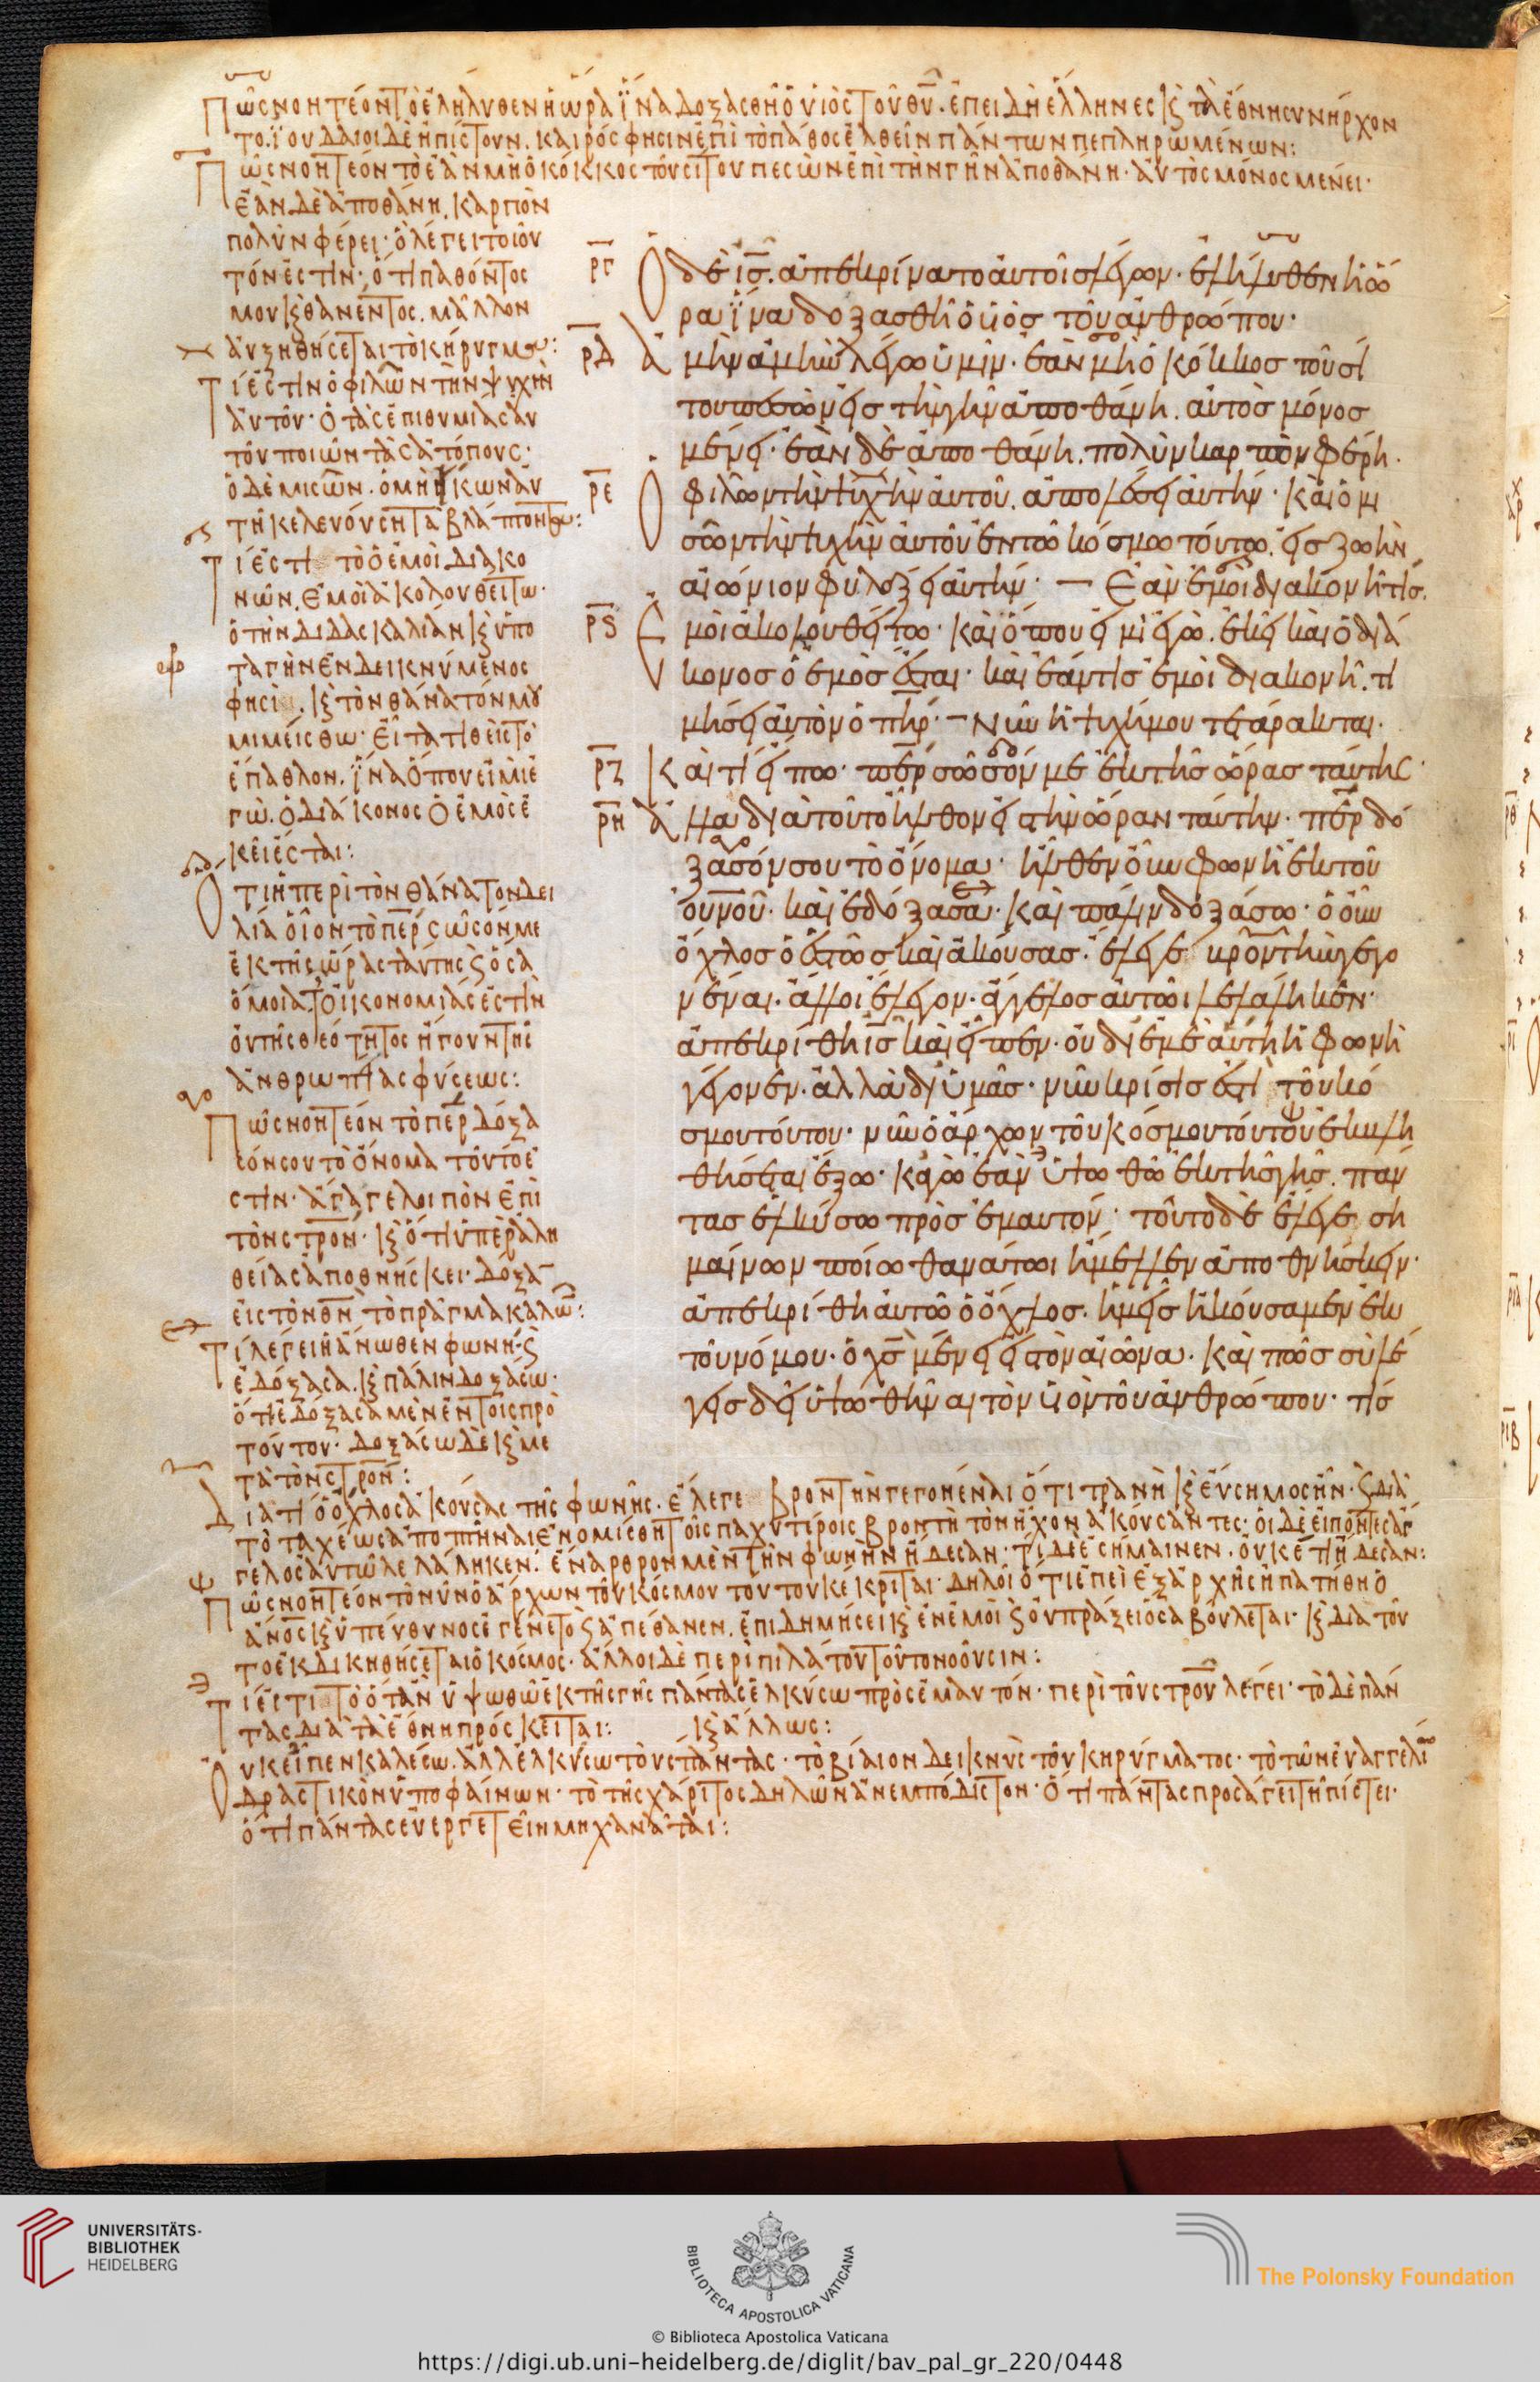 Πῶς νοητέον τὸ ἐλήλυθεν ἡ ὥρα ἵνα δοξασθῆ ὁ υἱὸς τοῦ θυ̅· ἐπειδὴ ἕλληνες κ̀ τὰ ἔθνη συνήρχον
το. ἰουδαῖοι δὲ ἠπίστουν. καιρός φησιν ἐπὶ τὸ πάθος ἐλθεῖν πάντων πεπληρωμένων:
Πῶς νοητέον τὸ ἐὰν μὴ ὁ κόκκος τοῦ σίτου πεσὼν ἐπὶ τὴν γῆν ἀποθάνη· αὐτὸς μόνος μένει·
ἐὰν δὲ ἀποθάνη. καρπὸν
πολὺν φέρει· ὃ λέγει τοιοῦ
τόν ἐστιν· ὅτι παθόντος
μου κ̀ θανέντος. μᾶλλον
αὐξηθήσεται τὸ κήρυγμα:
Τί ἐστιν ὁ φιλῶν τὴν ψυχὴν
αὐτοῦ· ὁ τὰς ἐπιθυμίας αὐ
τοῦ ποιῶν τὰς ἀτόπους·
ὁ δὲ μισῶν. ὁ μὴ εἴκων αὐ
τῆ κελευούση τὰ βλάπτοντα:
Τί ἐστι τὸ ὁ ἐμοὶ διακο
νῶν. ἐμοὶ ἀκολουθείτω·
ὁ τὴν διδασκαλίαν κ̀ ὑπο
ταγὴν ἐνδεικνύμενος
φησὶ. κ̀ τὸν θάνατόν μου
μιμείσθω· εἶτα τίθεις τὸ
ἔπαθλον. ἵνα ὅπου εἰμὶ ἐ
γὼ. ὁ διάκονος ὁ ἐμὸς ἐ
κεῖ ἔσται:
Ὅτι ἡ περὶ τὸν θάνατον δει
λία οἷον τὸ πε̅ρ σῶσόν με
ἐκ τῆς ὥρας ταύτης κ̀ ὅσα
ὅμοια. οἰκονομίας ἐστὶν
οὐ τῆς θεότητος ἤγουν τῆς
ἀνθρωπίας φύσεως:
Πῶς νοητέον τὸ πε̅ρ δόξα
σόν σου τὸ ὄνομα τοῦτο ἔ
στιν· ἄγαγε λοιπὸν ἐπὶ
τὸν στρο̅ν· κ̀ ὅτι ὑπὲρ ἀλη
θείας ἀποθνήσκει· δόξα̅
εἰς τὸν θν̅ τὸ πρᾶγμα καλῶν:
Τί λέγει ἡ ἄνωθεν φωνή· κ̀
ἐδόξασα. κ̀ πάλιν δοξάσω·
ὅτι ἐδόξασα μὲν ἐν τοῖς πρὸ
τούτου· δοξάσω δὲ κ̀ με
τὰ τὸν στρο̅ν:
ργ Ὁ δὲ ις̅. ἀπεκρίνατο αὐτοῖς λέγων· ἐλήλυθεν ἡ ὥ
ρα ἵνα δοξασθῆ ὁ υἱὸς τοῦ ἀνθρώπου·
ρδ ἀμὴν ἀμὴν λέγω ὑμῖν· ἐὰν μὴ ὁ κόκκος τοῦ σί
του πεσὼν εἰς τὴν γῆν ἀποθάνη. αὐτὸς μόνος
μένει· ἐὰν δὲ ἀποθάνη. πολὺν καρπὸν φέρη.
ρε Ὁ φιλῶν τὴν ψυχὴν αὐτοῦ. ἀπολέσει αὐτήν· καὶ ὁ μι
σῶν τὴν ψυχὴν αὐτοῦ ἐν τῶ κόσμω τούτω. εἰς ζωὴν
αἰώνιον φυλάξει αὐτήν· — Ἐὰν ἐμοὶ διακονῆ τίς.
ρς Ἐμοὶ ἀκολουθείτω· καὶ ὅπου εἰμὶ ἐγὼ. ἐκεῖ καὶ ὁ διά
κονος ὁ ἐμὸς ἔσται· καὶ ἐάν τις ἐμοὶ διακονῆ. τι
μήσει αὐτὸν ὁ πη̅ρ· — Νῦν ἡ ψυχή μου τετάρακται.
ρζ Καὶ τί εἴπω· πε̅ρ σῶσόν με ἐκ τῆς ὥρας ταύτης·
ρη ἀλλὰ διὰ τοῦτο ἦλθον εἰς τὴν ὥραν ταύτην· πε̅ρ δό
ξασόν σου τὸ ὄνομα· ἦλθεν οὖν φωνὴ ἐκ τοῦ
οὐνοῦ· καὶ ἐδόξασα· καὶ πάλιν δοξάσω· ὁ οὖν
ὄχλος ὁ ἑστὼς καὶ ἀκούσας. ἔλεγε βροντὴν γεγο
νέναι. ἄλλοι ἔλεγον. ἄγγελος αὐτῶι λελάληκεν·
ἀπεκρίθη ις̅ καὶ εἶπεν· οὐ δι' ἐμὲ αὕτη ἡ φωνὴ
γέγονεν. ἀλλὰ δι' ὑμᾶς· νῦν κρίσις ἐστὶ τοῦ κό
σμου τούτου· νῦν ὁ ἄρχων τοῦ κόσμου τούτου ἐκβλη
θήσεται ἔξω· κἀγὼ ἐὰν ὑψωθῶ ἐκ τῆς γῆς. πάν
τας ἑλκύσω πρὸς ἐμαυτόν· τοῦτο δὲ ἔλεγε ση
μαίνων ποίω θανάτωι ἤμελλεν ἀποθνήσκειν·
ἀπεκρίθη αὐτῶ ὁ ὄχλος. ἡμεῖς ἠκούσαμεν ἐκ
τοῦ νόμου· ὁ χς̅ μένει εἰς τὸν αἰῶνα. καὶ πῶς σὺ λέ
γεις δεῖ ὑψωθῆναι τὸν υἱὸν τοῦ ἀνθρώπου· τίς
Διατί ὁ ὄχλος ἀκούσας τῆς φωνῆς. ἔλεγε βροντὴν γεγονέναι ὅτι τρανὴ κ̀ εὔσημος ἦν· κ̀ διὰ
τὸ ταχέως ἀποπτῆναι ἐνομίσθη τοῖς παχυτέροις βροντὴ τὸν ἦχον ἀκούσαντες· οἱ δὲ εἰπόντες ἄγ
γελος αὐτῶ λελάληκεν. ἔναρθρον μὲν τὴν φωνὴν ἤδεσαν· τί δὲ ἐσήμαινεν. οὐκέτι ἤδεσαν:
Πῶς νοητέον τὸ νῦν ὁ ἄρχων τοῦ κόσμου τούτου κέκριται· δηλοῖ ὅτι ἐπεὶ ἐξ ἀρχῆς ἠπατήθη ὁ
ἄνο̅ς κ̀ ὑπεύθυνος ἐγένετο κ̀ ἀπέθανεν. ἐπιδημήσει κ̀ ἐν ἐμοὶ κ̀ οὐ πράξει ὅσα βούλεται· κ̀ διὰ τοῦ
το ἐκδικηθήσεται ὁ κόσμος· ἄλλοι δὲ περὶ πιλάτου τοῦτο νοοῦσιν:
Τί ἐστι τὸ ὅταν ὑψωθῶ ἐκ τῆς γῆς πάντας ἑλκύσω πρὸς ἐμαυτόν· περὶ τοῦ στρο̅υ λέγει· τὸ δὲ πάν
τας διὰ τὰ ἔθνη πρόσκειται: κ̀ ἄλλως:
Οὐκ εἶπεν καλέσω. ἀλλ' ἑλκύσω τοὺς πάντας· τὸ βίαιον δεικνὺς τοῦ κηρύγματος· τὸ τῶν εὐαγγελίων
δραστικὸν ὑποφαίνων· τὸ τῆς χάριτος δηλῶν ἀνεμπόδιστον· ὅτι πάντας προσάγει τῆ πίστει·
ὅτι πάντας εὐεργετεῖν μηχανᾶται:
UNIVERSITÄTS-
BIBLIOTHEK
HEIDELBERG
BIBLIOTECA APOSTOLICA VATICANA
The Polonsky Foundation
© Biblioteca Apostolica Vaticana
https://digi.ub.uni-heidelberg.de/diglit/bav_pal_gr_220/0448